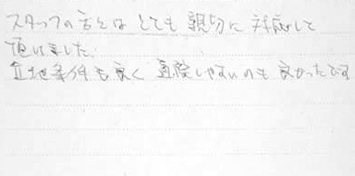 スタッフの方々はとても親切に対応して
頂けました。
立地条件も良く 通院しやすいのも良かったです